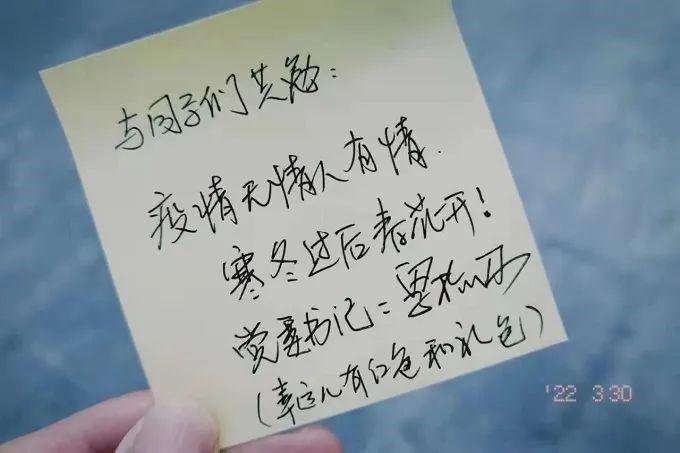 与同学们共勉：
疫情无情人有情.
寒冬过后春花开！
党委书记：
（幸运儿有红包和礼包）
'22 3 30